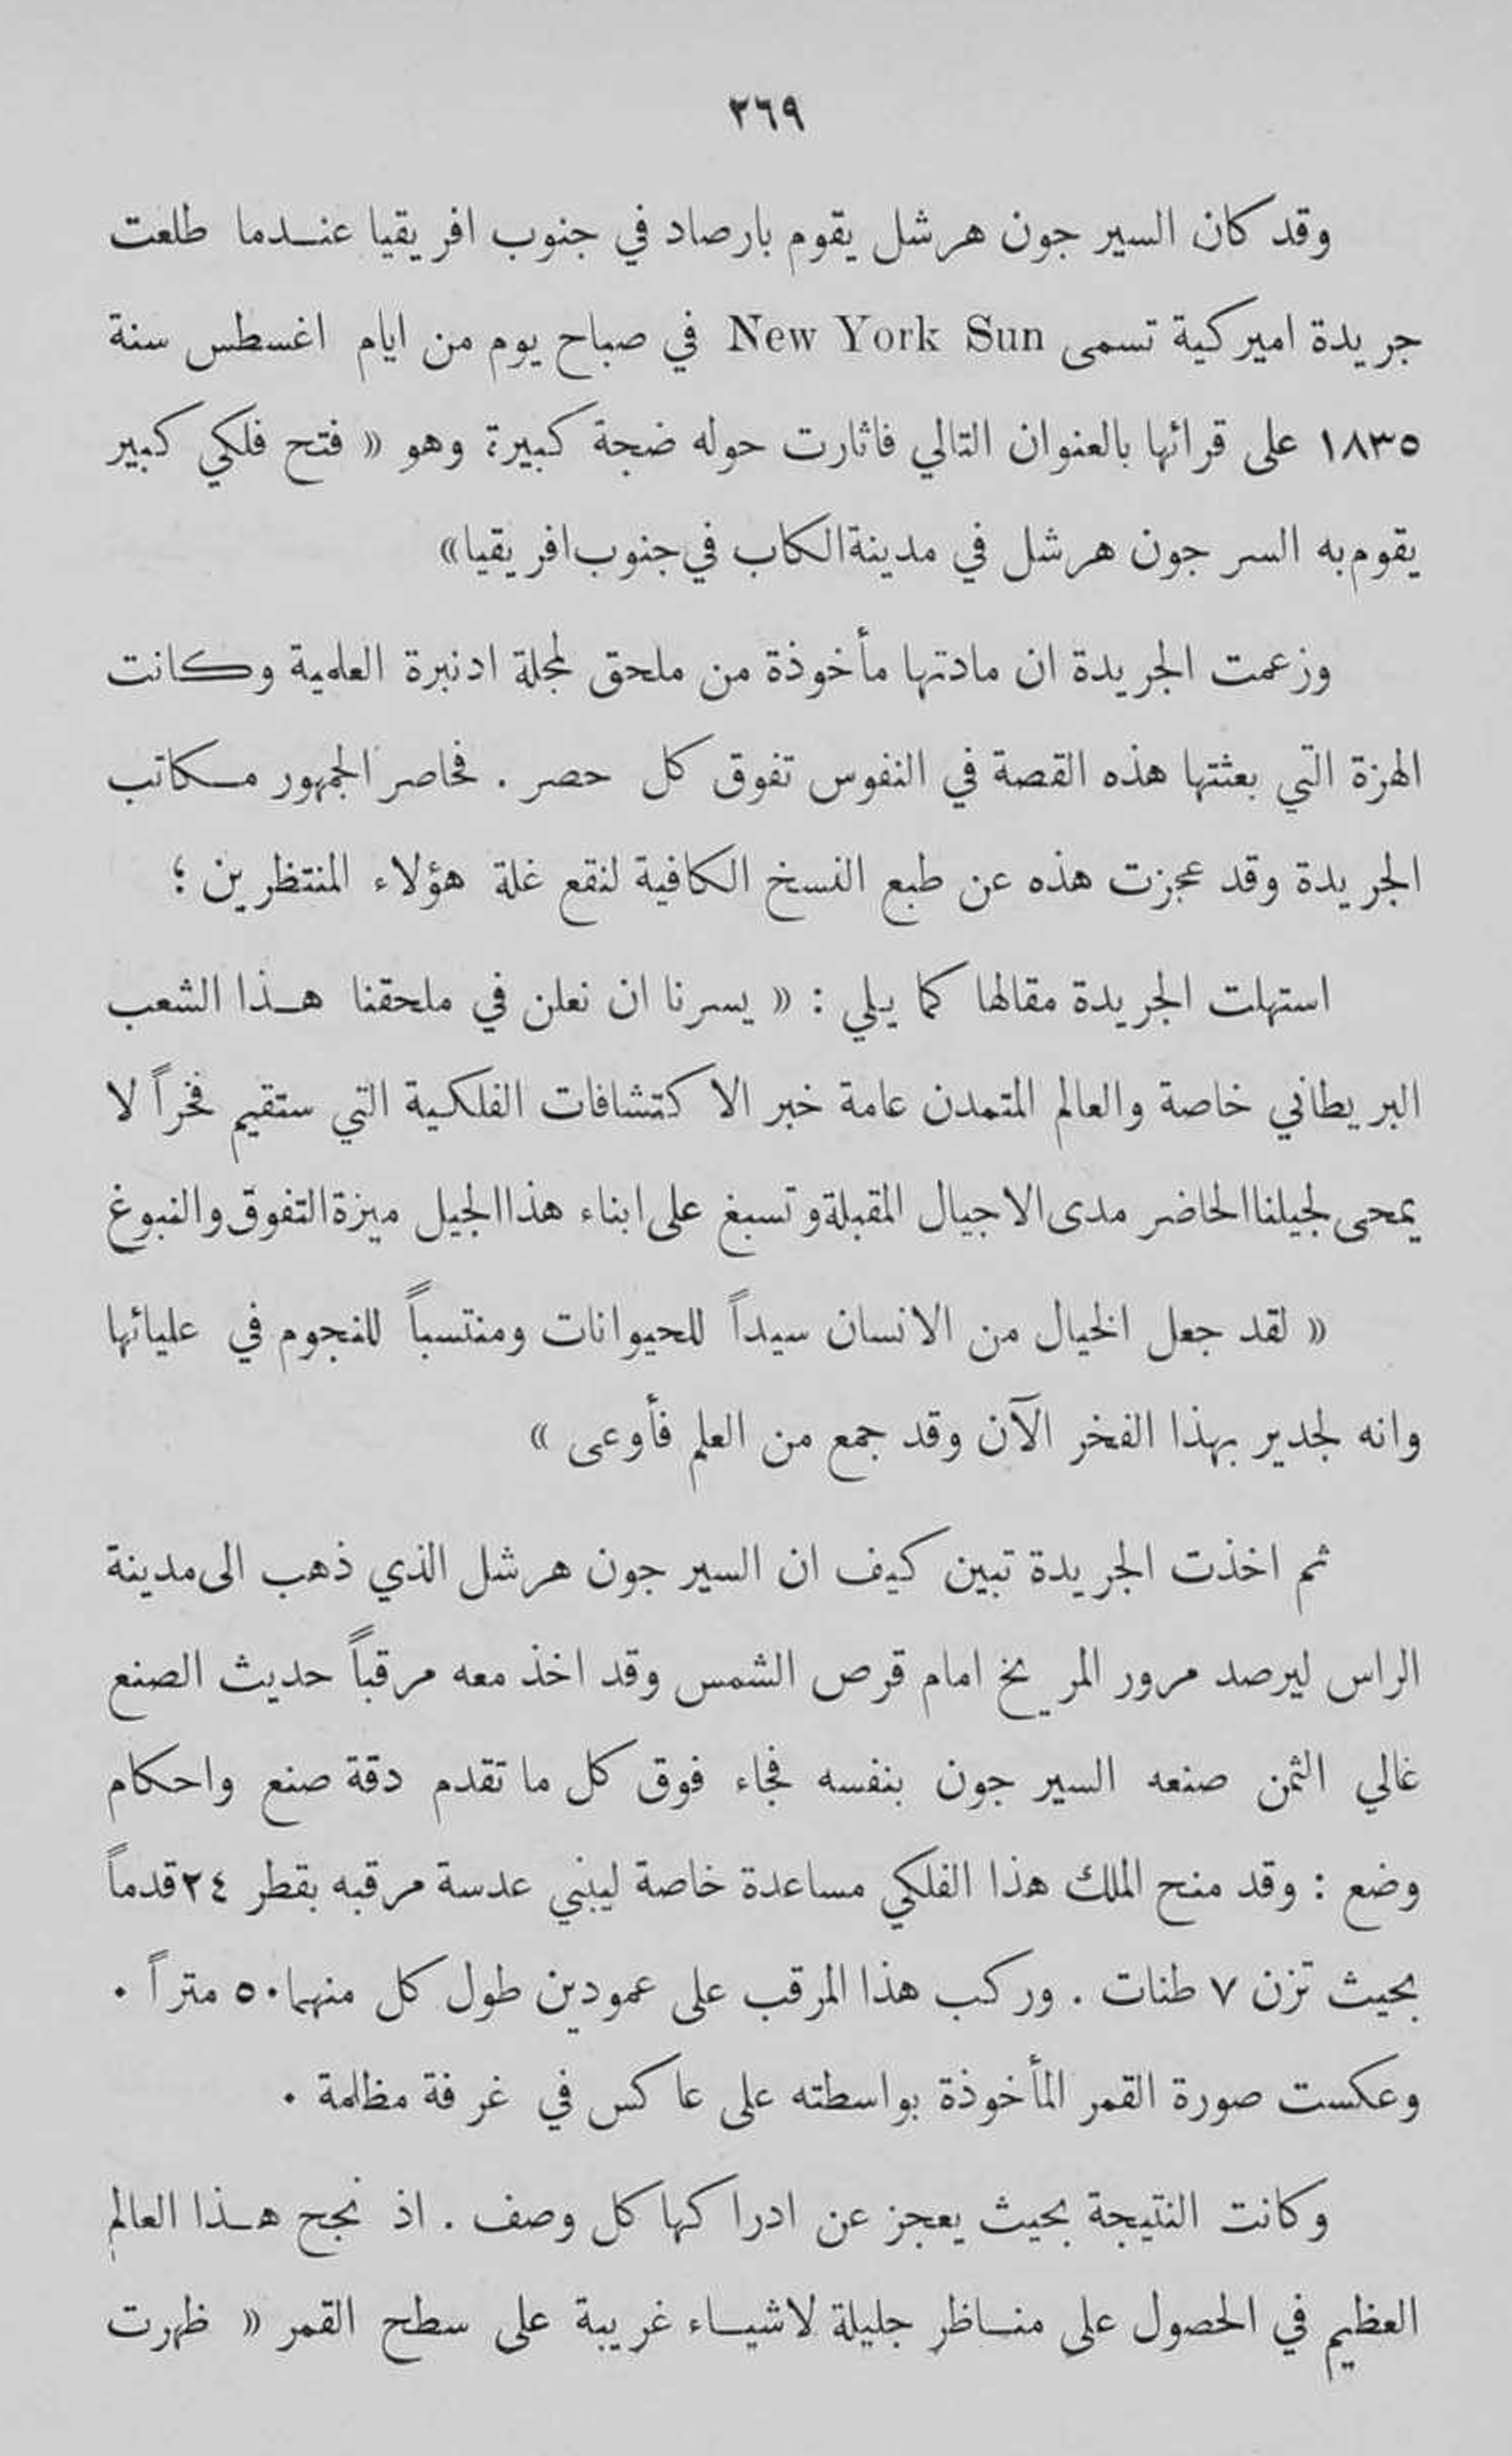 ٣٦٩
وقد كان السير جون هرشل يقوم بارصاد في جنوب افريقيا عندما طلعت
جريدة اميركية تسمى New York Sun في صباح يوم من ايام اغسطس سنة
١٨٣٥ على قرائها بالعنوان التالي فاثارت حوله ضجة كبيرة وهو « فتح فلكي كبير
يقوم به السر جون هرشل في مدينة الكاب في جنوب افريقيا»
وزعمت الجريدة ان مادتها مأخوذة من ملحق لمجلة ادنبرة العلمية وكانت
الهزة التي بعثتها هذه القصة في النفوس تفوق كل حصر . فحاصر الجمهور مكاتب
الجريدة وقد عجزت هذه عن طبع النسخ الكافية لنقع غلة هؤلاء المنتظرين ؛
استهلت الجريدة مقالها كما يلي : « يسرنا ان نعلن في ملحقنا هذا الشعب
البريطاني خاصة والعالم المتمدن عامة خبر الاكتشافات الفلكية التي ستقيم فخراً لا
يمحى لجيلنا الحاضر مدى الاجيال المقبلة وتسبغ على ابناء هذا الجيل ميزة التفوق والنبوغ
« لقد جعل الخيال من الانسان سيداً للحيوانات ومنتسباً للنجوم في عليائها
وانه لجدير بهذا الفخر الآن وقد جمع من العلم فأوعى »
ثم اخذت الجريدة تبين كيف ان السير جون هرشل الذي ذهب الى مدينة
الراس ليرصد مرور المريخ امام قرص الشمس وقد اخذ معه مرقباً حديث الصنع
غالي الثمن صنعه السير جون بنفسه فجاء فوق كل ما تقدم دقة صنع واحكام
وضع : وقد منح الملك هذا الفلكي مساعدة خاصة ليبني عدسة مرقبه بقطر ٢٤ قدماً
بحيث تزن ٧ طنات . وركب هذا المرقب على عمودين طول كل منهما ٥٠ متراً .
وعكست صورة القمر المأخوذة بواسطته على عاكس في غرفة مظلمة .
وكانت النتيجة بحيث يعجز عن ادراكها كل وصف . اذ نجح هذا العالم
العظيم في الحصول على مناظر جليلة لاشياء غريبة على سطح القمر « ظهرت